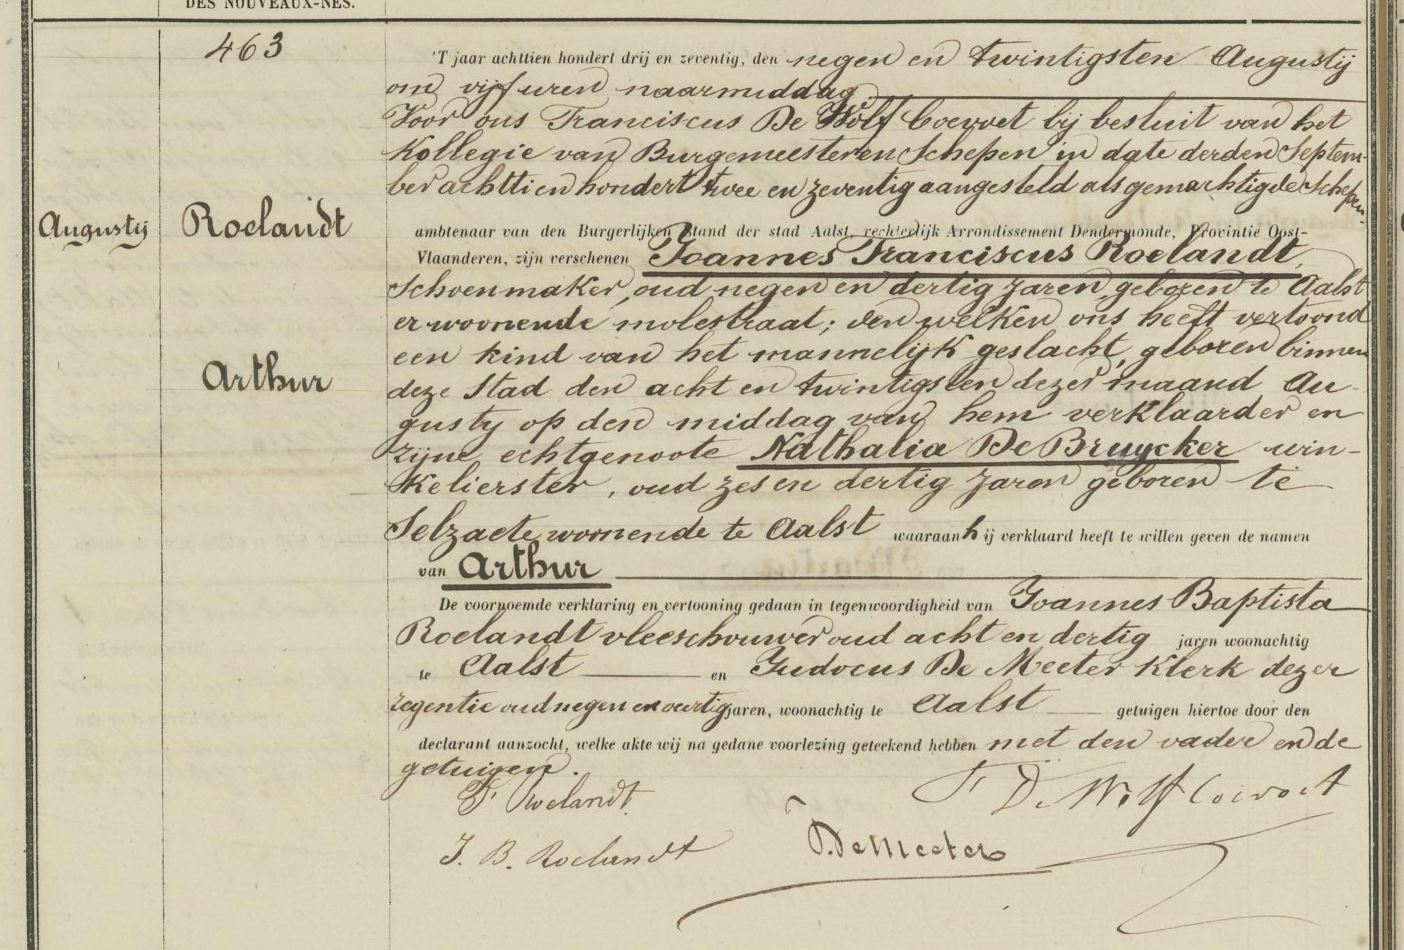 DES NOUVEAUX-NÉS.
463
Augustij
Roelandt
Arthur
'T jaar achttien hondert drij en zeventig, den negen en twintigsten Augustij
om vijf uren naarmiddag
Voor ons Franciscus De Wolf Coevoet bij besluit van het
Kollegie van Burgemeester en Schepen in date derden Septem-
ber achttien hondert twee en zeventig aangesteld als gemachtigde Schepen
ambtenaar van den Burgerlijken Stand der stad Aalst, rechterlijk Arrondissement Dendermonde, Provintie Oost-
Vlaanderen, zijn verschenen Joannes Franciscus Roelandt,
Schoenmaker, oud negen en dertig jaren, geboren te Aalst
er woonende molestraat; den welken ons heeft vertoond
een kind van het mannelijk geslacht, geboren binnen
deze Stad den acht en twintigsten dezer maand Au-
gusty op den middag van hem verklaarder en
zijne echtgenoote Nathalia De Bruycker win-
kelierster, oud zes en dertig jaren geboren te
Selzaete woonende te Aalst waaraan hij verklaard heeft te willen geven de namen
van Arthur
De voornoemde verklaring en vertooning gedaan in tegenwoordigheid van Joannes Baptista
Roelandt vleeschouwer oud acht en dertig jaren woonachtig
te Aalst en Judocus De Meeter Klerk dezer
regentie oud negen en veertig jaren, woonachtig te Aalst getuigen hiertoe door den
declarant aanzocht, welke akte wij na gedane voorlezing geteekend hebben met den vader en de
getuigen.
F Roelandt
F De Wolf Coevoet
J. B. Roelandt
DeMeeter